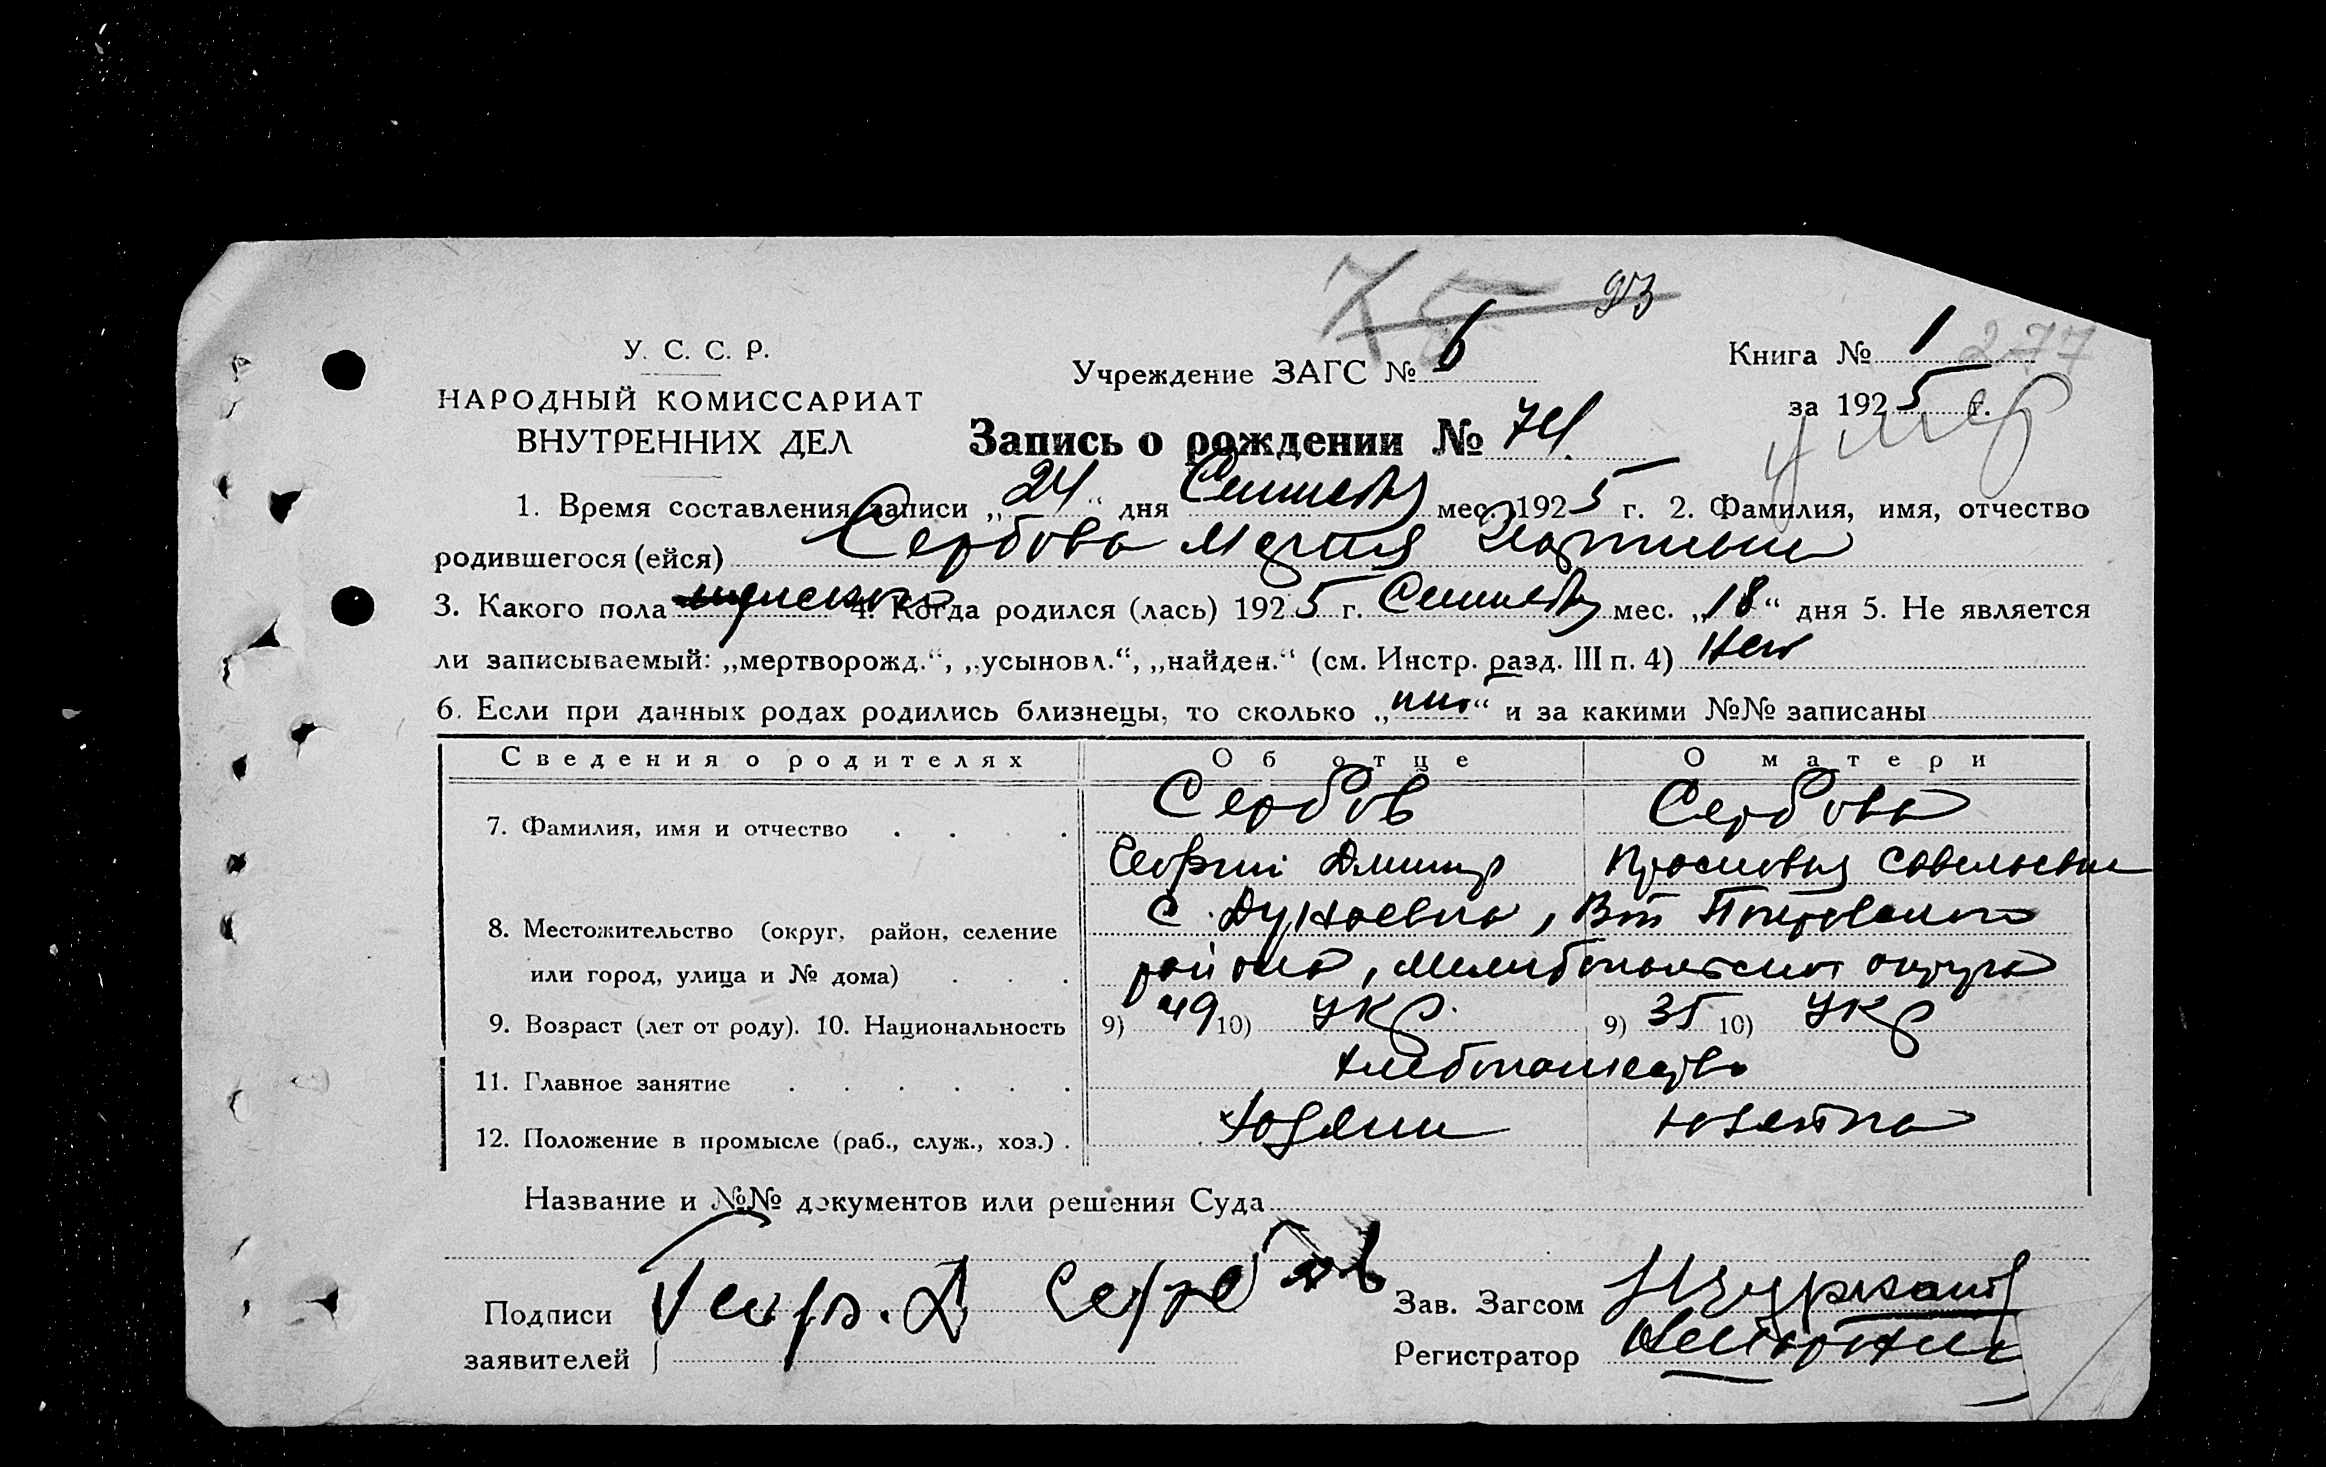 93
У. С. С. Р.
НАРОДНЫЙ КОМИССАРИАТ
ВНУТРЕННИХ ДЕЛ
Учреждение ЗАГС № 6
Книга № 1 277
за 1925 г.
умер
Запись о рождении № 74.
1. Время составления записи „24“ дня мес. 1925 г. 2. Фамилия, имя, отчество
родившегося (ейся) Сербова Мария
3. Какого пола женского 4. Когда родился (лась) 1925 г. мес. „18“ дня 5. Не является
ли записываемый: „мертворожд.“, „усыновл.“, „найден.“ (см. Инстр. разд. III п. 4) Нет
6. Если при данных родах родились близнецы, то сколько „“ и за какими №№ записаны
Сведения о родителях Об отце О матери
7. Фамилия, имя и отчество Сербов Сербова
Георгий Дмитр Просковия Савельевна
8. Местожительство (округ, район, селение с. Дунаевка,
или город, улица и № дома) района, Мелитопольского округа
9. Возраст (лет от роду). 10. Национальность 9) 49 10) Укр. 9) 35 10) Укр
11. Главное занятие хлебопашество
12. Положение в промысле (раб., служ., хоз.) хозяин хозяйка
Название и №№ документов или решения Суда
Подписи Геор. Д Сербов Зав. Загсом
заявителей Регистратор